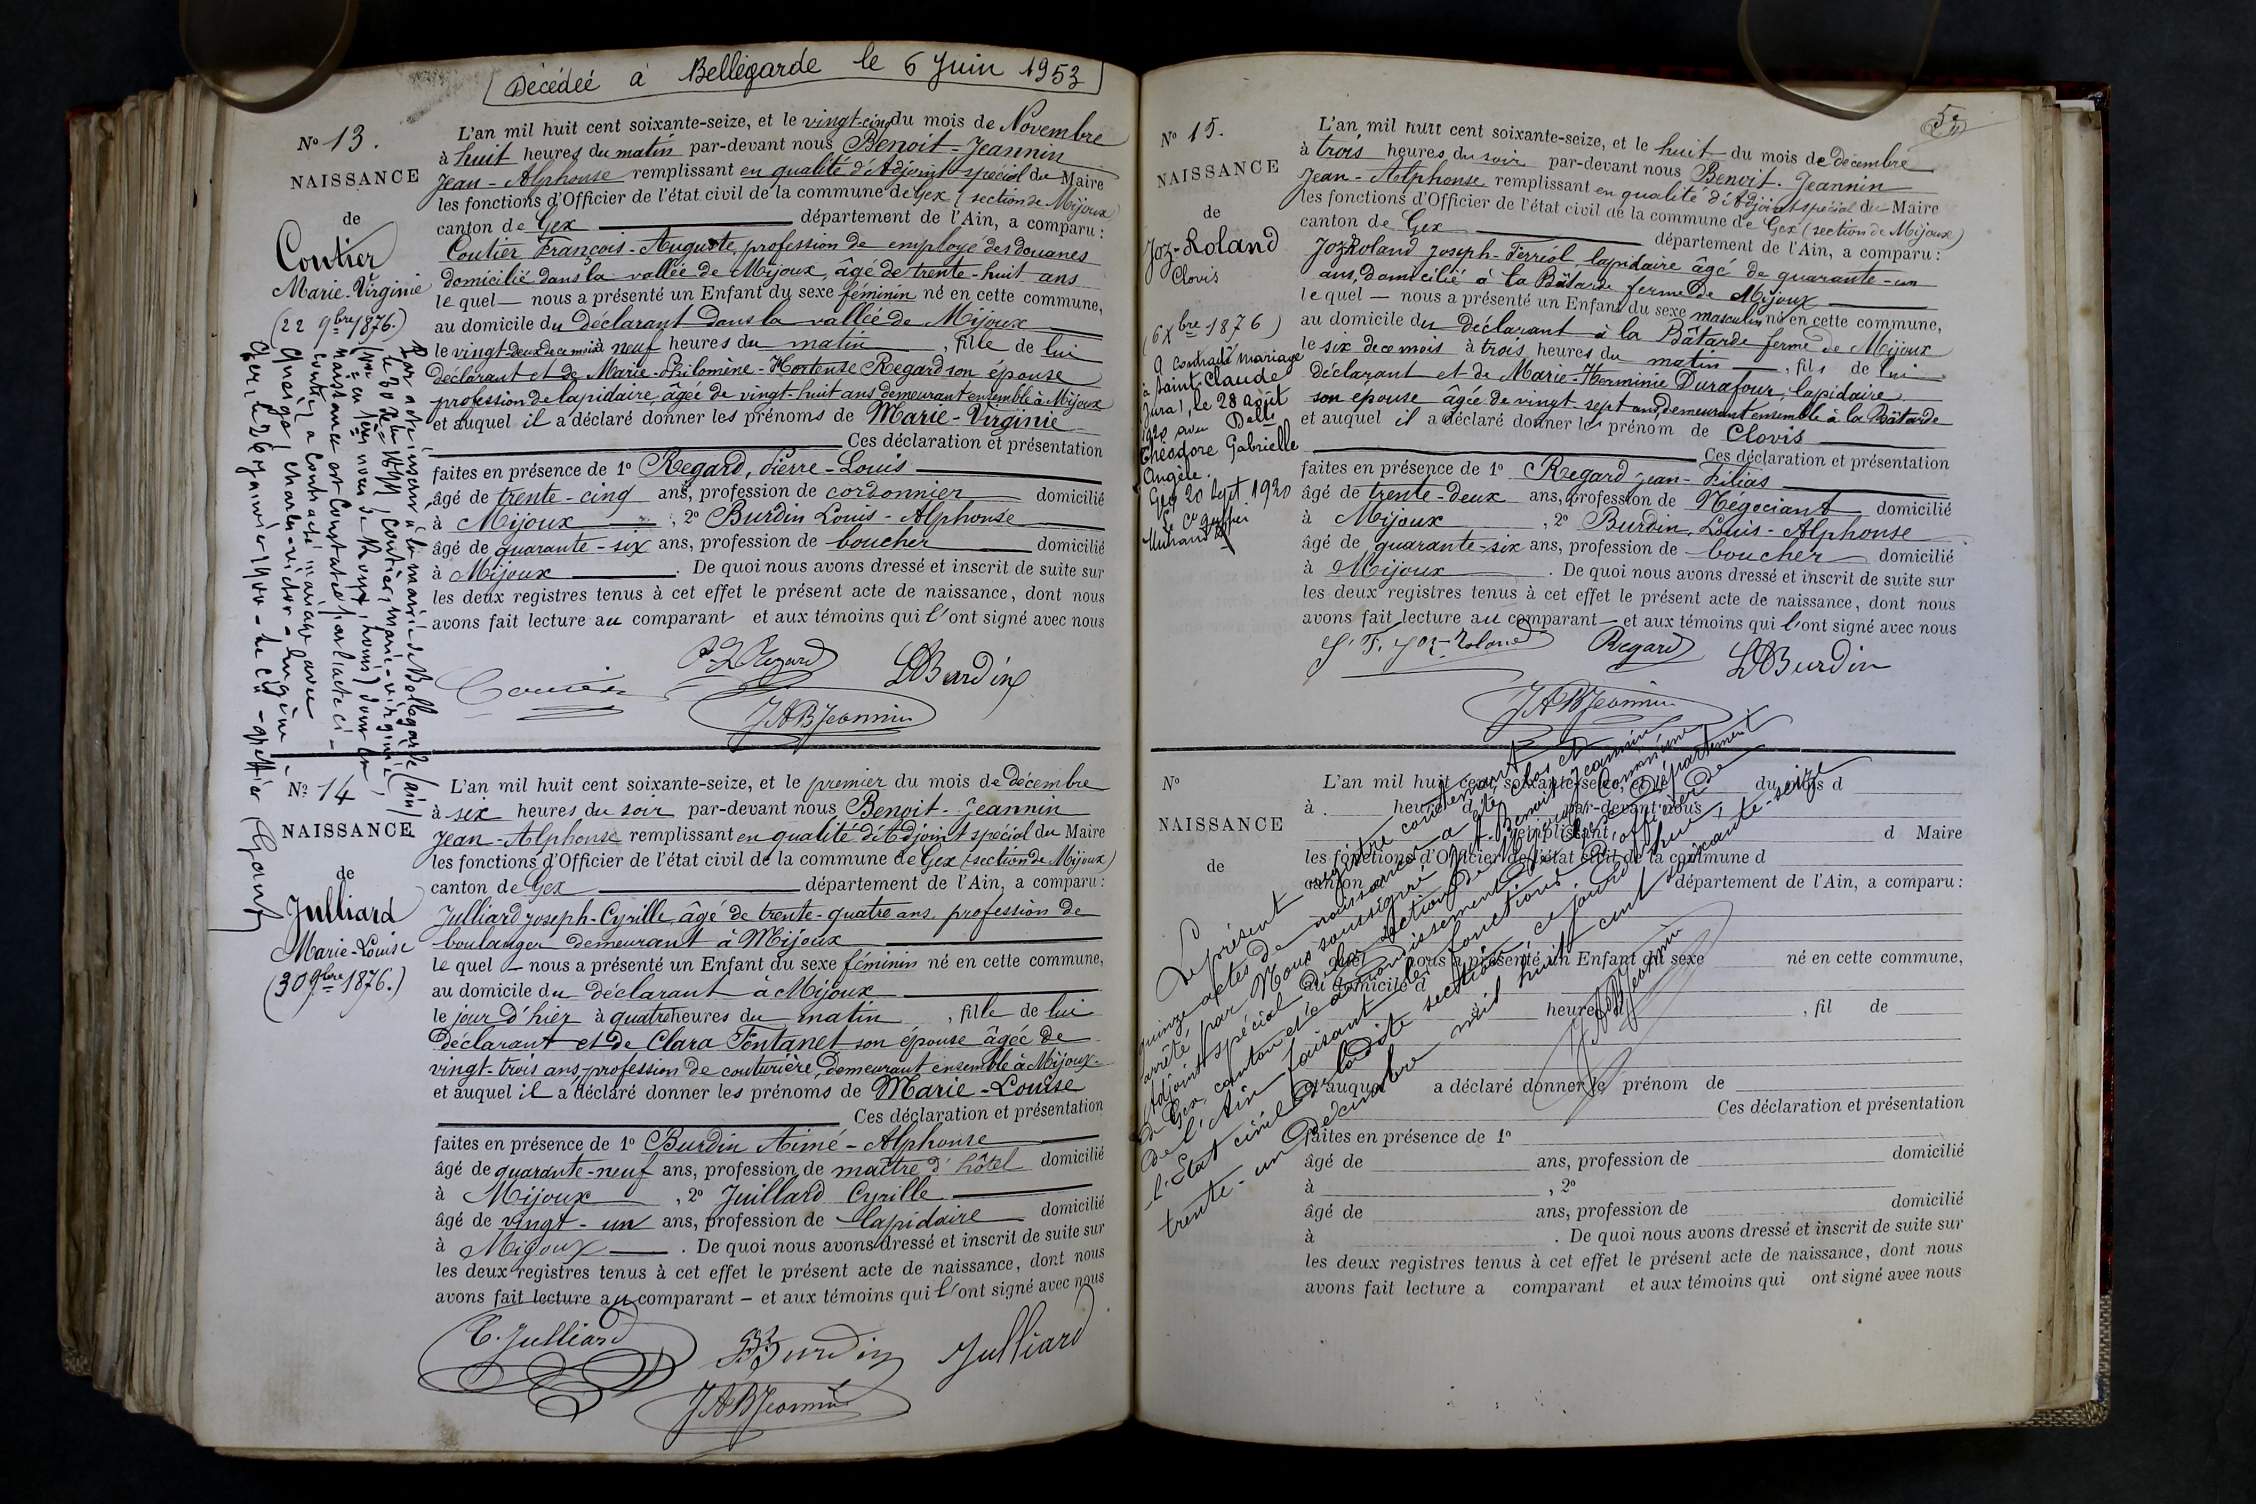 Décédée à Bellegarde le 6 Juin 1953
No 13.
NAISSANCE
de
Coutier
Marie-Virginie
(22 9bre 1876.)
L'an mil huit cent soixante-seize, et le vingt-cinq du mois de Novembre
à huit heures du matin par-devant nous Benoit-Jeannin
Jean-Alphonse remplissant en qualité d'Adjoint spécial du Maire
les fonctions d'Officier de l'état civil de la commune de Gex (section de Mijoux)
canton de Gex département de l'Ain, a comparu:
Coutier François-Auguste, profession de employé des douanes
domicilié dans la vallée de Mijoux, âgé de trente-huit ans
le quel nous a présenté un Enfant du sexe féminin né en cette commune,
au domicile du déclarant dans la vallée de Mijoux
le vingt-deux de ce mois à neuf heures du matin, fille de lui
déclarant et de Marie-Philomène-Hortense Regard son épouse
profession de lapidaire, âgée de vingt-huit ans demeurant ensemble à Mijoux
et auquel il a déclaré donner les prénoms de Marie-Virginie
Ces déclaration et présentation
faites en présence de 1o Regard, Pierre-Louis
âgé de trente-cinq ans, profession de cordonnier domicilié
à Mijoux, 2o Burdin Louis-Alphonse
âgé de quarante-six ans, profession de boucher domicilié
à Mijoux. De quoi nous avons dressé et inscrit de suite sur
les deux registres tenus à cet effet le présent acte de naissance, dont nous
avons fait lecture au comparant et aux témoins qui l'ont signé avec nous
Coutier P L Regard LA Burdin
J A B Jeannin
Par acte inscrit à la mairie de Bellegarde (Ain)
Coutier, Marie-Virginie
naissance est constatée par l'acte ci-
contre, a contracté mariage avec
Charles-Victor-Eugène
No 14
NAISSANCE
de
Julliard
Marie-Louise
(30 9bre 1876.)
L'an mil huit cent soixante-seize, et le premier du mois de décembre
à six heures du soir par-devant nous Benoit-Jeannin
Jean-Alphonse remplissant en qualité d'Adjoint spécial du Maire
les fonctions d'Officier de l'état civil de la commune de Gex (section de Mijoux)
canton de Gex département de l'Ain, a comparu:
Julliard Joseph-Cyrille, âgé de trente-quatre ans, profession de
boulanger demeurant à Mijoux
le quel nous a présenté un Enfant du sexe féminin né en cette commune,
au domicile du déclarant à Mijoux
le jour d'hier à quatre heures du matin, fille de lui
déclarant et de Clara Fontanet son épouse âgée de
vingt-trois ans, profession de couturière, demeurant ensemble à Mijoux
et auquel il a déclaré donner les prénoms de Marie-Louise
Ces déclaration et présentation
faites en présence de 1o Burdin Aimé-Alphonse
âgé de quarante-neuf ans, profession de maître d'hôtel domicilié
à Mijoux, 2o Juillard Cyrille
âgé de vingt-un ans, profession de lapidaire domicilié
à Mijoux. De quoi nous avons dressé et inscrit de suite sur
les deux registres tenus à cet effet le présent acte de naissance, dont nous
avons fait lecture au comparant – et aux témoins qui l'ont signé avec nous
C. Julliard Burdin Julliard
J A B Jeannin
No 15.
NAISSANCE
de
Joz-Roland
Clovis
(6 Xbre 1876)
A contracté mariage
à Saint-Claude
Jura), le 28 août
1920 avec Delle
Théodore Gabrielle
Angèle.
Gex 20 Sept 1920
L'an mil huit cent soixante-seize, et le huit du mois de décembre
à trois heures du soir par-devant nous Benoit-Jeannin
Jean-Alphonse remplissant en qualité d'Adjoint spécial du Maire
les fonctions d'Officier de l'état civil de la commune de Gex (section de Mijoux)
canton de Gex département de l'Ain, a comparu:
Joz-Roland Joseph-Ferréol, lapidaire âgé de quarante-un
ans, domicilié à la Bâtarde ferme de Mijoux
le quel – nous a présenté un Enfant du sexe masculin né en cette commune,
au domicile du déclarant à la Bâtarde ferme de Mijoux
le six de ce mois à trois heures du matin, fils de lui
déclarant et de Marie-Herminie Durafour, lapidaire
son épouse âgée de vingt-sept ans, demeurant ensemble à la Bâtarde
et auquel il a déclaré donner les prénom de Clovis
Ces déclaration et présentation
faites en présence de 1o Regard Jean-Filias
âgé de trente-deux ans, profession de Négociant domicilié
à Mijoux, 2o Burdin, Louis-Alphonse
âgé de quarante-six ans, profession de boucher domicilié
à Mijoux. De quoi nous avons dressé et inscrit de suite sur
les deux registres tenus à cet effet le présent acte de naissance, dont nous
avons fait lecture au comparant – et aux témoins qui l'ont signé avec nous
J. F. Joz-Roland Regard LA Burdin
J A B Jeannin
No
NAISSANCE
de
L'an mil huit cent soixante-seize, et le du mois d
à heures d par-devant nous
remplissant d Maire
les fonctions d'Officier de l'état civil de la commune d
canton département de l'Ain, a comparu:
quel nous a présenté un Enfant du sexe né en cette commune,
au domicile d
le heures d, fil de
et auquel a déclaré donner le prénom de
Ces déclaration et présentation
faites en présence de 1o
âgé de ans, profession de domicilié
à , 2o
âgé de ans, profession de domicilié
à . De quoi nous avons dressé et inscrit de suite sur
les deux registres tenus à cet effet le présent acte de naissance, dont nous
avons fait lecture a comparant et aux témoins qui ont signé avec nous
Le présent registre contenant
quinze actes de naissance a été clos et
arrêté par Nous soussigné J. A. Benoit-Jeannin
Adjoint spécial de la section de Mijoux, Commune
de Gex, canton et arrondissement de Gex, Département
de l'Ain faisant les fonctions d'officier de
l'Etat civil de ladite section, ce jourd'hui,
trente-un Décembre mil huit cent soixante-seize
J A B Jeannin